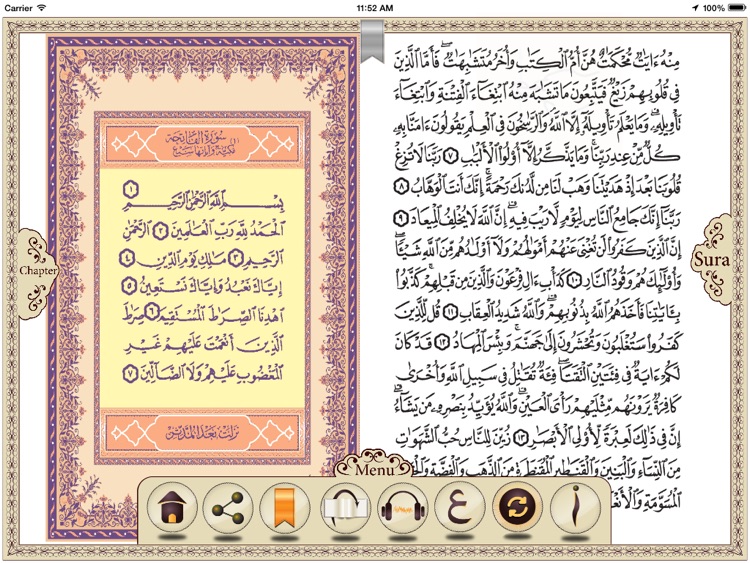 Carrier
11:52 AM
100%
سورة الفاتحة
مكية وآياتها سبع
١
بِسْمِ اللَّهِ الرَّحْمَٰنِ الرَّحِيمِ
الْحَمْدُ لِلَّهِ رَبِّ الْعَالَمِينَ ٢ الرَّحْمَٰنِ
الرَّحِيمِ ٣ مَالِكِ يَوْمِ الدِّينِ ٤
إِيَّاكَ نَعْبُدُ وَإِيَّاكَ نَسْتَعِينُ ٥
اهْدِنَا الصِّرَاطَ الْمُسْتَقِيمَ ٦ صِرَاطَ
الَّذِينَ أَنْعَمْتَ عَلَيْهِمْ غَيْرِ
الْمَغْضُوبِ عَلَيْهِمْ وَلَا الضَّالِّينَ ٧
نزلت بعد المدثر
Chapter
مِنْهُ ءَايَٰتٌ مُّحْكَمَٰتٌ هُنَّ أُمُّ ٱلْكِتَٰبِ وَأُخَرُ مُتَشَٰبِهَٰتٌ ۖ فَأَمَّا ٱلَّذِينَ
فِى قُلُوبِهِمْ زَيْغٌ فَيَتَّبِعُونَ مَا تَشَٰبَهَ مِنْهُ ٱبْتِغَآءَ ٱلْفِتْنَةِ وَٱبْتِغَآءَ
تَأْوِيلِهِۦ ۗ وَمَا يَعْلَمُ تَأْوِيلَهُۥٓ إِلَّا ٱللَّهُ ۗ وَٱلرَّٰسِخُونَ فِى ٱلْعِلْمِ يَقُولُونَ ءَامَنَّا بِهِۦ
كُلٌّ مِّنْ عِندِ رَبِّنَا ۗ وَمَا يَذَّكَّرُ إِلَّآ أُو۟لُوا۟ ٱلْأَلْبَٰبِ ٧ رَبَّنَا لَا تُزِغْ
قُلُوبَنَا بَعْدَ إِذْ هَدَيْتَنَا وَهَبْ لَنَا مِن لَّدُنكَ رَحْمَةً ۚ إِنَّكَ أَنتَ ٱلْوَهَّابُ ٨
رَبَّنَآ إِنَّكَ جَامِعُ ٱلنَّاسِ لِيَوْمٍ لَّا رَيْبَ فِيهِ ۚ إِنَّ ٱللَّهَ لَا يُخْلِفُ ٱلْمِيعَادَ ٩
إِنَّ ٱلَّذِينَ كَفَرُوا۟ لَن تُغْنِىَ عَنْهُمْ أَمْوَٰلُهُمْ وَلَآ أَوْلَٰدُهُم مِّنَ ٱللَّهِ شَيْـًٔا ۖ
وَأُو۟لَٰٓئِكَ هُمْ وَقُودُ ٱلنَّارِ ١٠ كَدَأْبِ ءَالِ فِرْعَوْنَ وَٱلَّذِينَ مِن قَبْلِهِمْ ۚ كَذَّبُوا۟
بِـَٔايَٰتِنَا فَأَخَذَهُمُ ٱللَّهُ بِذُنُوبِهِمْ ۗ وَٱللَّهُ شَدِيدُ ٱلْعِقَابِ ١١ قُل لِّلَّذِينَ
كَفَرُوا۟ سَتُغْلَبُونَ وَتُحْشَرُونَ إِلَىٰ جَهَنَّمَ ۚ وَبِئْسَ ٱلْمِهَادُ ١٢ قَدْ كَانَ
لَكُمْ ءَايَةٌ فِى فِئَتَيْنِ ٱلْتَقَتَا ۖ فِئَةٌ تُقَٰتِلُ فِى سَبِيلِ ٱللَّهِ وَأُخْرَىٰ
كَافِرَةٌ يَرَوْنَهُم مِّثْلَيْهِمْ رَأْىَ ٱلْعَيْنِ ۚ وَٱللَّهُ يُؤَيِّدُ بِنَصْرِهِۦ مَن يَشَآءُ ۗ
إِنَّ فِى ذَٰلِكَ لَعِبْرَةً لِّأُو۟لِى ٱلْأَبْصَٰرِ ١٣ زُيِّنَ لِلنَّاسِ حُبُّ ٱلشَّهَوَٰتِ
مِنَ ٱلنِّسَآءِ وَٱلْبَنِينَ وَٱلْقَنَٰطِيرِ ٱلْمُقَنطَرَةِ مِنَ ٱلذَّهَبِ وَٱلْفِضَّةِ
ٱلْمُسَوَّمَةِ
Sura
Menu
ع